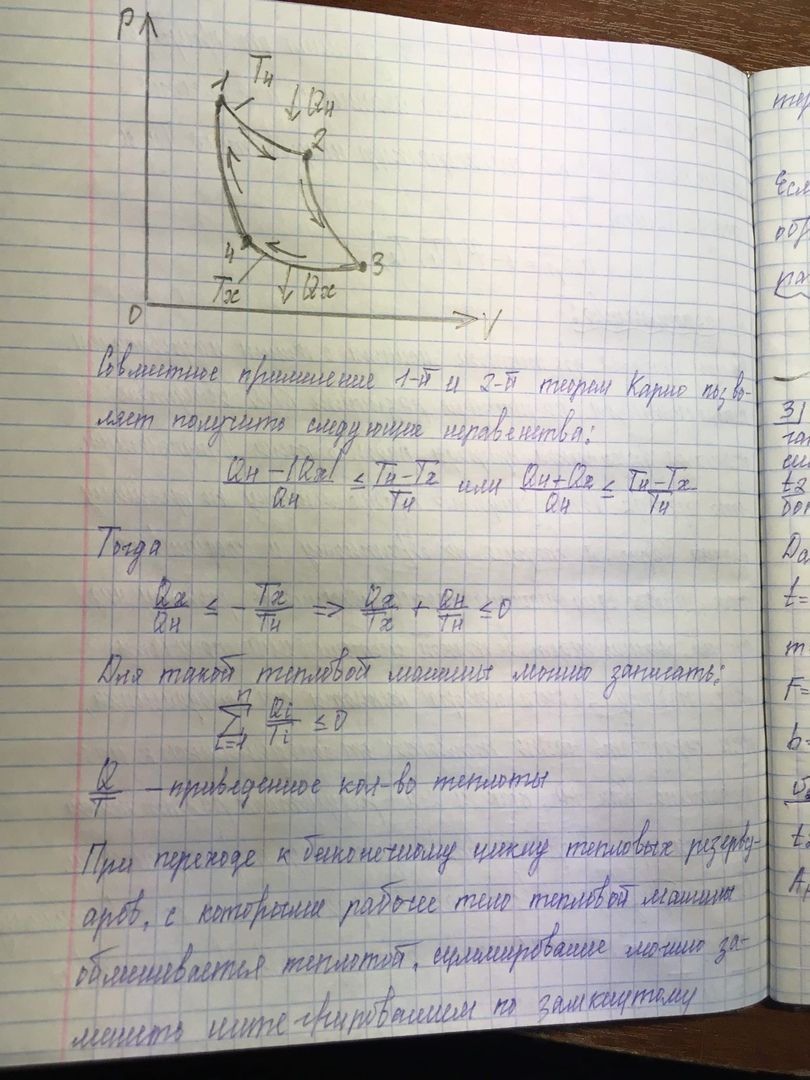 P
1
Tн
↓ Qн
2
4
3
Tх
↓ Qх
0
V
Совместное применение 1-й и 2-й теорем Карно позво-
ляет получить следующие неравенства:
(Qн - |Qх|)/Qн ≤ (Tн - Tх)/Tн или (Qн + Qх)/Qн ≤ (Tн - Tх)/Tн
Тогда
Qх/Qн ≤ - Tх/Tн => Qх/Tх + Qн/Tн ≤ 0
Для такой тепловой машины можно записать:
∑ⁿᵢ₌₁ Qi/Ti ≤ 0
Q/T - приведенное кол-во теплоты
При переходе к бесконечному циклу тепловых резерву-
аров, с которыми рабочее тело тепловой машины
обменивается теплотой, суммирование можно за-
менить интегрированием по замкнутому
Есл
обр
31
t2
Da
t=
m
F=
b=
t2